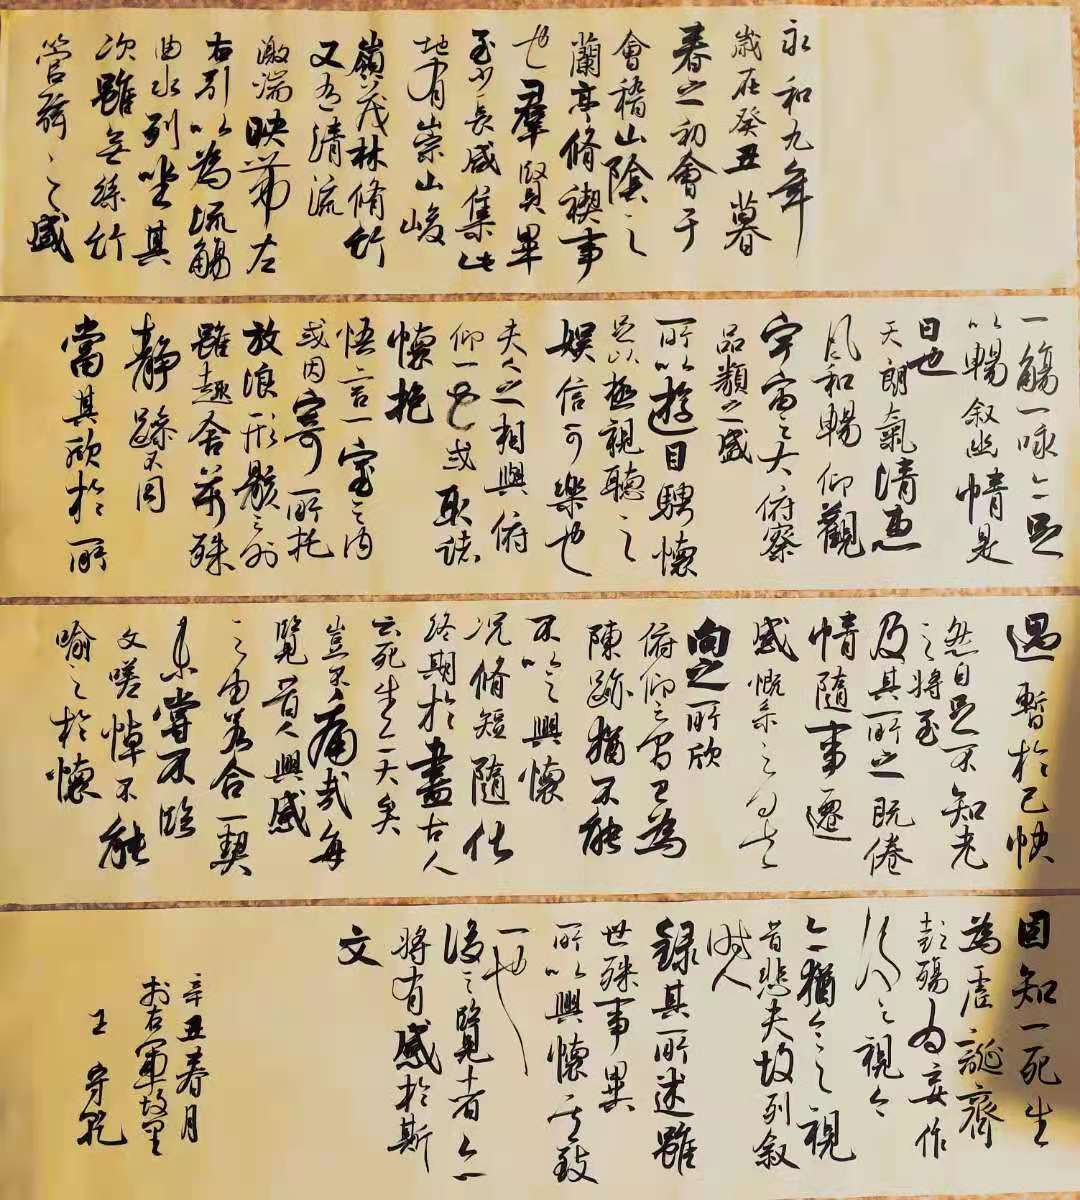 永和九年
歲在癸丑暮
春之初會于
會稽山陰之
蘭亭脩禊事
也羣賢畢
至少長咸集此
地有崇山峻
嶺茂林脩竹
又有清流
激湍映帶左
右引以為流觴
曲水列坐其
次雖無絲竹
管弦之盛
一觴一咏亦足
以暢敘幽情是
日也
天朗氣清惠
風和暢仰觀
宇宙之大俯察
品類之盛
所以遊目騁懷
足以極視聽之
娛信可樂也
夫人之相與俯
仰一世或取諸
懷抱
悟言一室之內
或因寄所托
放浪形骸之外
雖趣舍萬殊
靜躁不同
當其欣於所
遇暫於己快
然自足不知老
之將至
及其所之既倦
情隨事遷
感慨系之矣
向之所欣
俯仰之間已為
陳跡猶不能
不以之興懷
況脩短隨化
終期於盡古人
云死生亦大矣
豈不痛哉每
覽昔人興感
之由若合一契
未嘗不臨
文嗟悼不能
喻之於懷
固知一死生
為虛誕齊
彭殤為妄作
後之視今
亦猶今之視
昔悲夫故列敘
時人
錄其所述雖
世殊事異
所以興懷其致
一也
後之覽者亦
將有感於斯
文
辛丑春月
於右軍故里
王